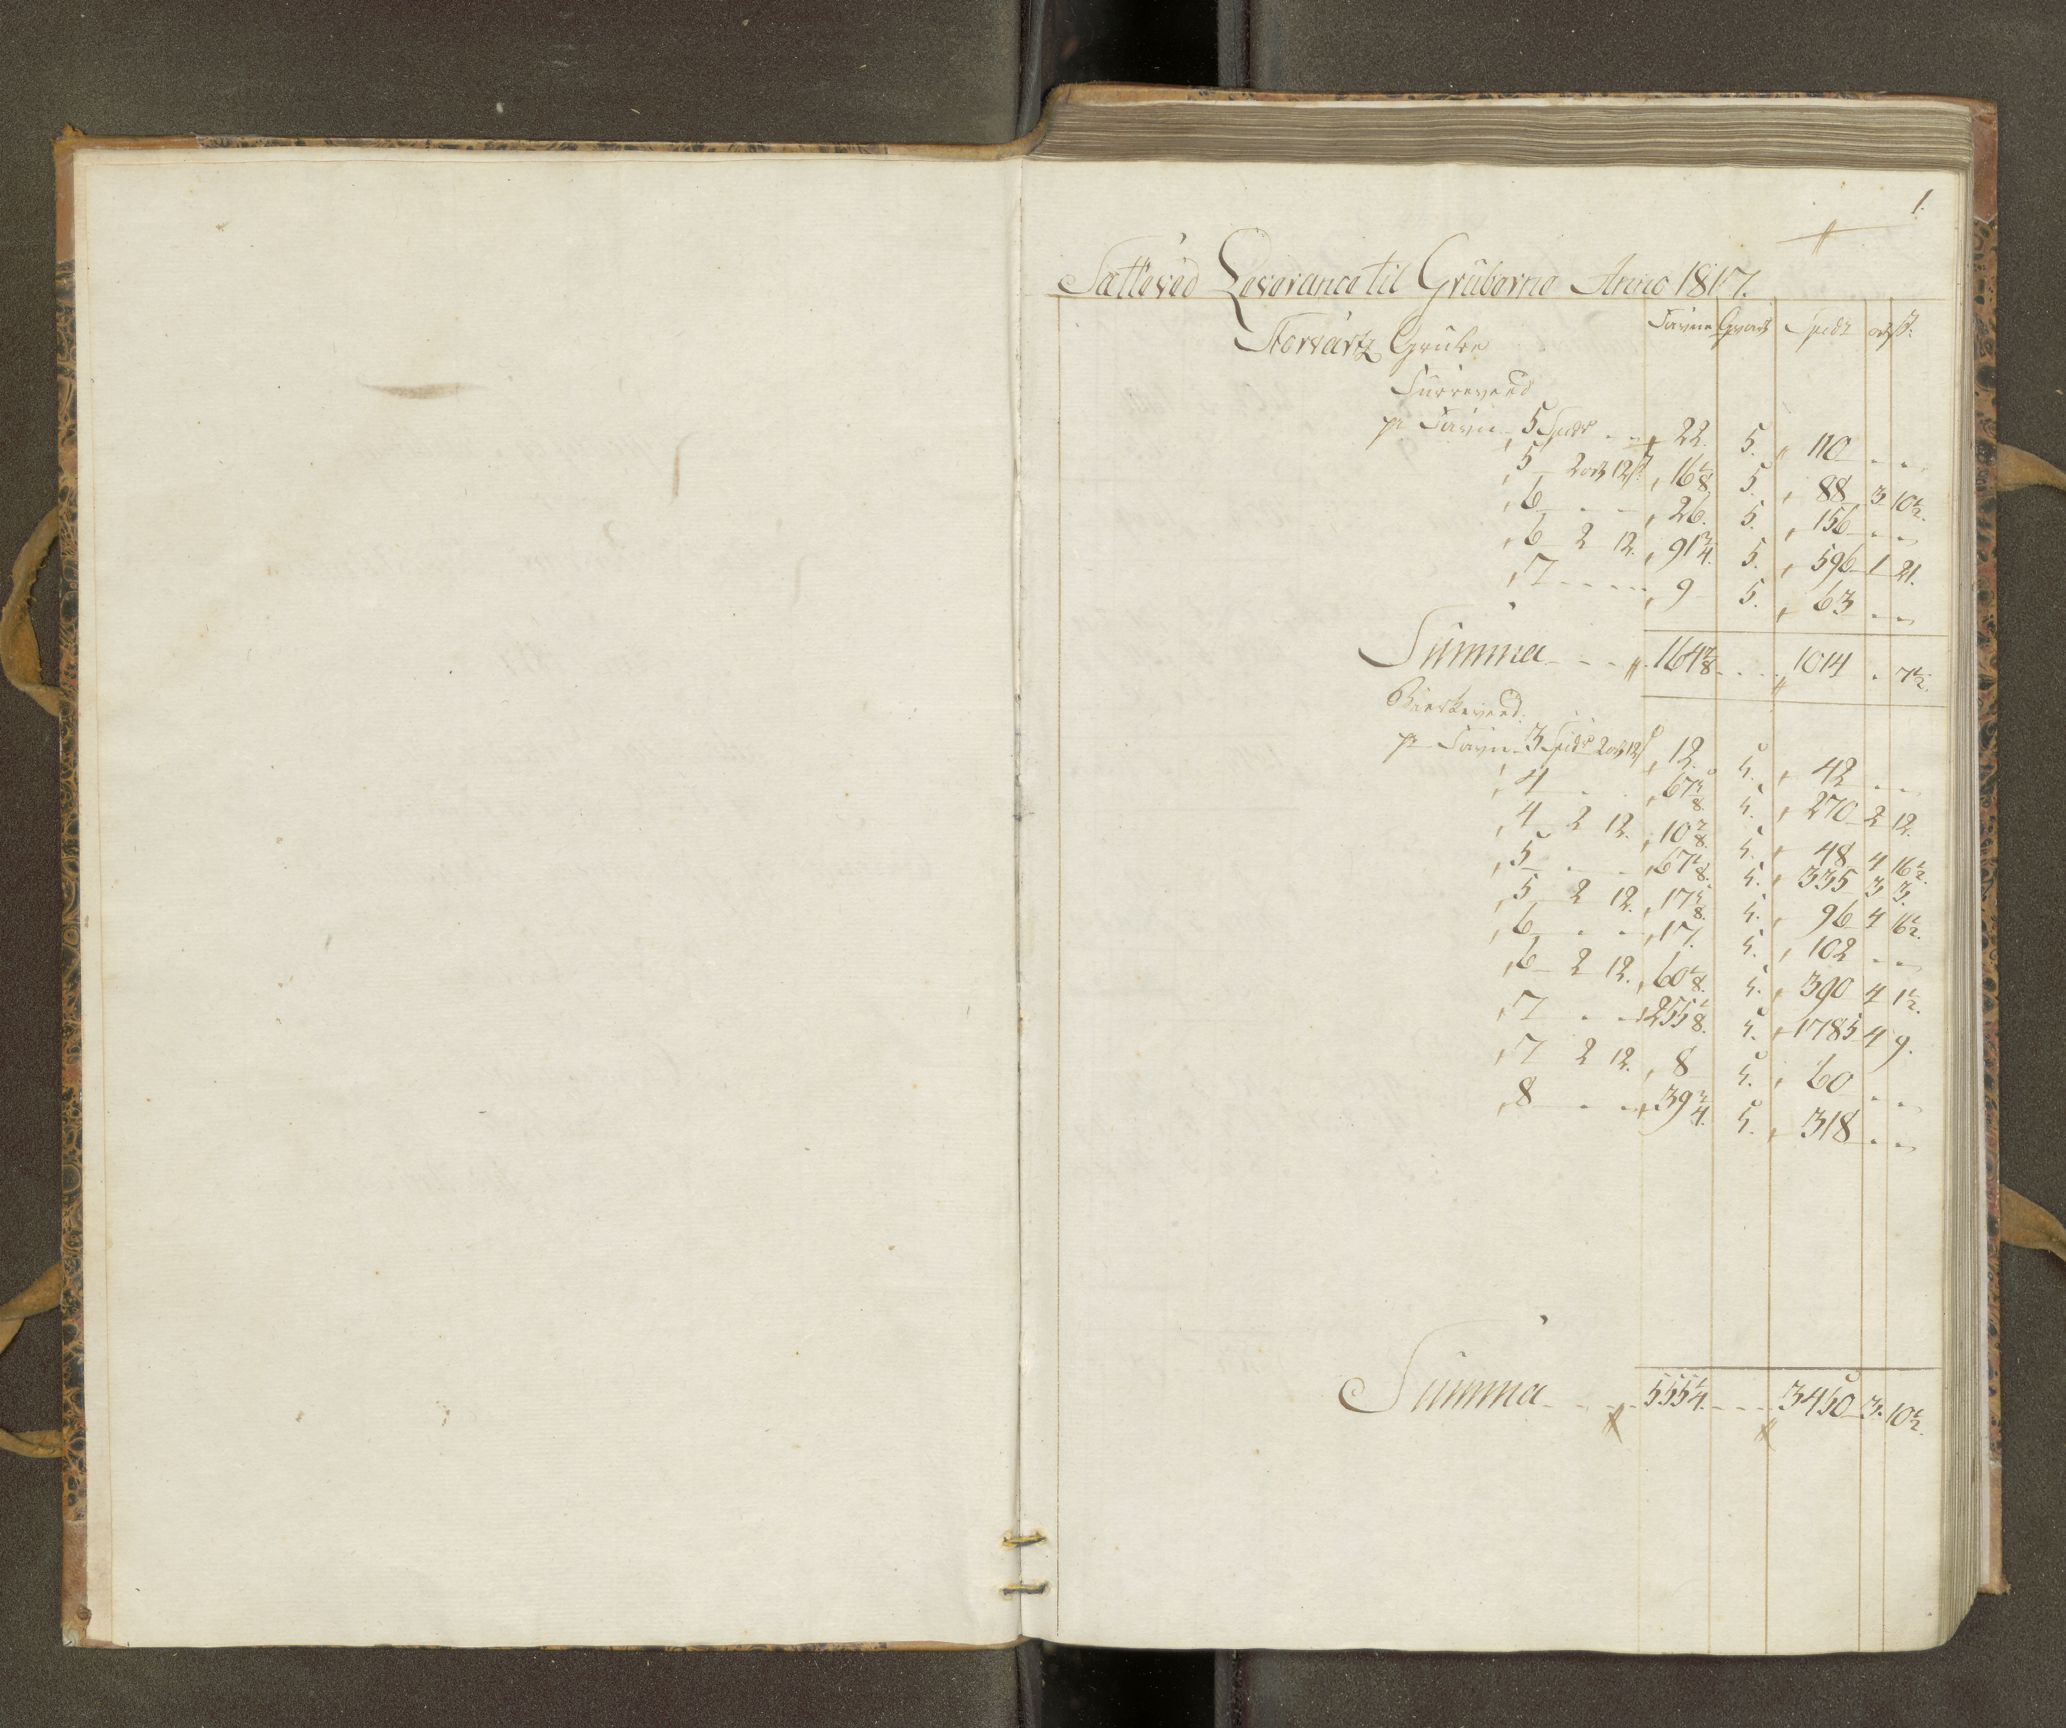 1.
Sætteved Leverance til Gruberne Anno 1817.
Favne Qvart Spdr ort ß:
Storvartz Grube
Furreveed
pr Favn 5 Spdr - - 22. 5. 110 - -
5 2 ort 12 ß. 16 1/8 5. 88 3 10 1/2.
6 - - 26. 5. 156 - -
6 2 12. 91 3/4. 5. 596 1 21.
7 - - - - 9 5. 63 - -
Summa - - - 164 7/8 - - - 1014 - 7 1/2.
Birkeveed:
pr Favn 3 Spdr 2 ort 12 ß 12. 5. 42 - -
4 - - 67 5/8. 5. 270 2 12.
4 2 12. 10 7/8. 5. 48 4 16 1/2.
5 - - 67 1/8. 5. 335 3 3.
5 2 12. 17 5/8. 5. 96 4 16 1/2.
6 - - 17. 5. 102 - -
6 2 12. 60 1/8. 5. 390 4 1 1/2.
7 - - 255 1/8. 5. 1785 4 9.
7 2 12. 8 5. 60 - -
8 - - 39 3/4. 5. 318 - -
Summa - - - 555 1/4. - - - 3450 3. 10 1/2.